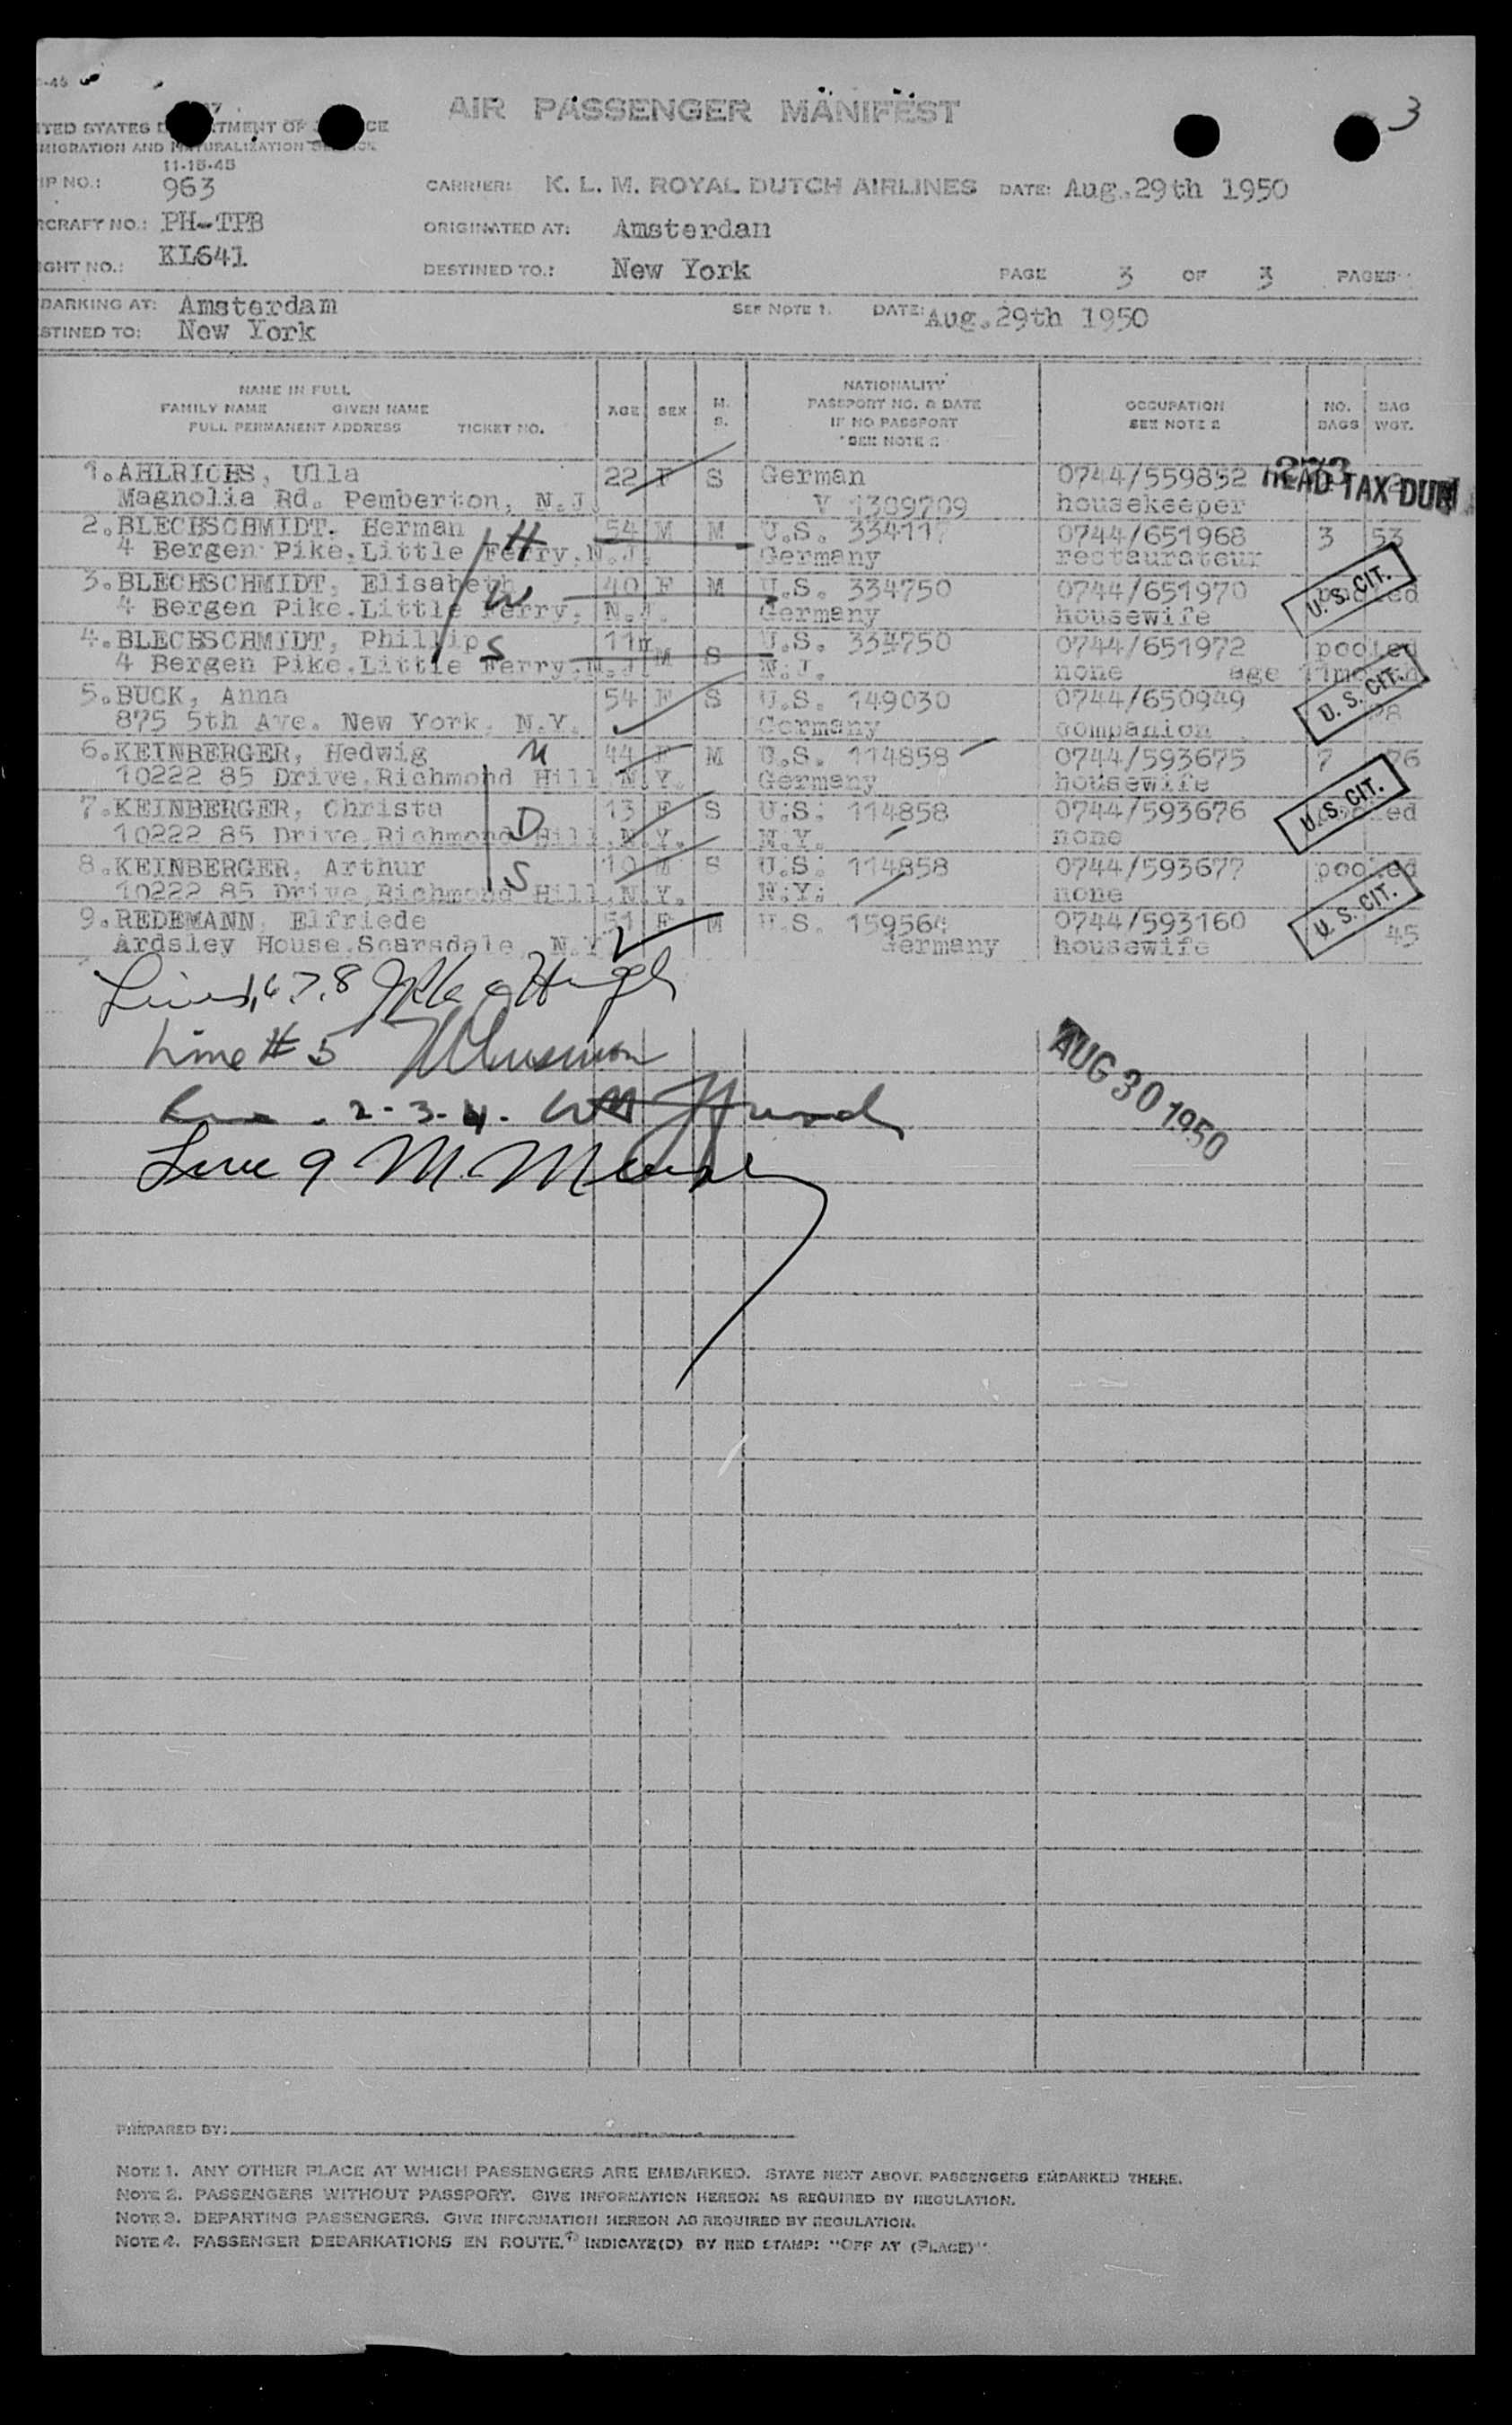 3
-45
AIR PASSENGER MANIFEST
TED STATES TMENT OF CE
MIGRATION AND NATURALIZATION
11-15-45
IP NO.: 963
CARRIER: K. L. M. ROYAL DUTCH AIRLINES DATE: Aug.29th 1950
RCRAFT NO.: PH-TPB
ORIGINATED AT: Amsterdan
GHT NO.: KL641
DESTINED TO.: New York PAGE 3 OF 3 PAGES
BARKING AT: Amsterdam SEE NOTE 1. DATE: Aug.29th 1950
STINED TO: New York
NAME IN FULL
FAMILY NAME GIVEN NAME
FULL PERMANENT ADDRESS TICKET NO.
AGE SEX M. S.
NATIONALITY
PASSPORT NO. & DATE
IF NO PASSPORT
SEE NOTE 2
OCCUPATION
SEE NOTE 2
NO. BAGS
BAG WGT.
1.AHLRICHS, Ulla 22 F S German 0744/559852
Magnolia Rd. Pemberton, N.J. V 1389709 housekeeper
HEAD TAX DUE
2.BLECHSCHMIDT. Herman 54 M M U.S. 334117 0744/651968 3 53
4 Bergen Pike.Little Ferry,N.J. Germany restaurateur
H
3.BLECHSCHMIDT, Elisabeth 40 F M U.S. 334750 0744/651970 pooled
4 Bergen Pike.Little Ferry, N.J. Germany housewife
W
U. S. CIT.
4.BLECHSCHMIDT, Phillip 11m M S U.S. 334750 0744/651972 pooled
4 Bergen Pike.Little Ferry,N.J. N.J. none age 11months
S
5.BUCK, Anna 54 F S U.S. 149030 0744/650949
875 5th Ave. New York, N.Y. Germany companion
U. S. CIT.
6.KEINBERGER, Hedwig 44 F M U.S. 114858 0744/593675 7 76
10222 85 Drive.Richmond Hill N.Y. Germany housewife
M
7.KEINBERGER, Christa 13 F S U.S. 114858 0744/593676 pooled
10222 85 Drive,Richmond Hill.N.Y. N.Y. none
D
U. S. CIT.
8.KEINBERGER, Arthur 10 M S U.S. 114858 0744/593677 pooled
10222 85 Drive,Richmond Hill.N.Y. N.Y. none
S
9.REDEMANN, Elfriede 51 F M U.S. 159564 0744/593160 45
Ardsley House.Scarsdale, N.Y. Germany housewife
U. S. CIT.
Lines 1, 6 7. 8
Line # 5
2-3-4.
Line 9 M.
AUG 30 1950
PREPARED BY:
NOTE 1. ANY OTHER PLACE AT WHICH PASSENGERS ARE EMBARKED. STATE NEXT ABOVE PASSENGERS EMBARKED THERE.
NOTE 2. PASSENGERS WITHOUT PASSPORT. GIVE INFORMATION HEREON AS REQUIRED BY REGULATION.
NOTE 3. DEPARTING PASSENGERS. GIVE INFORMATION HEREON AS REQUIRED BY REGULATION.
NOTE 4. PASSENGER DEBARKATIONS EN ROUTE. INDICATE(D) BY RED STAMP: "OFF AT (PLACE)"